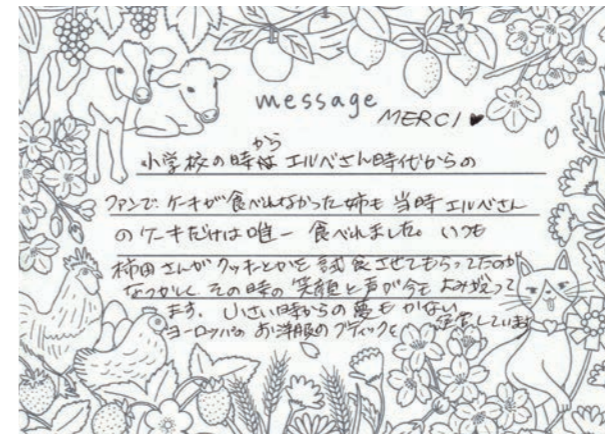 message
MERCI ♥
から
小学校の時は エルベさん時代からの
ファンで ケーキが食べれなかった姉も 当時エルベさん
のケーキだけは唯一 食べれました。いつも
柿田さんがクッキーとかを試食させてもらってたのが
なつかしく その時の笑顔と声が今もよみがえって
ます。小さい時からの夢もかない
ヨーロッパの お洋服のブティックを 運営しています